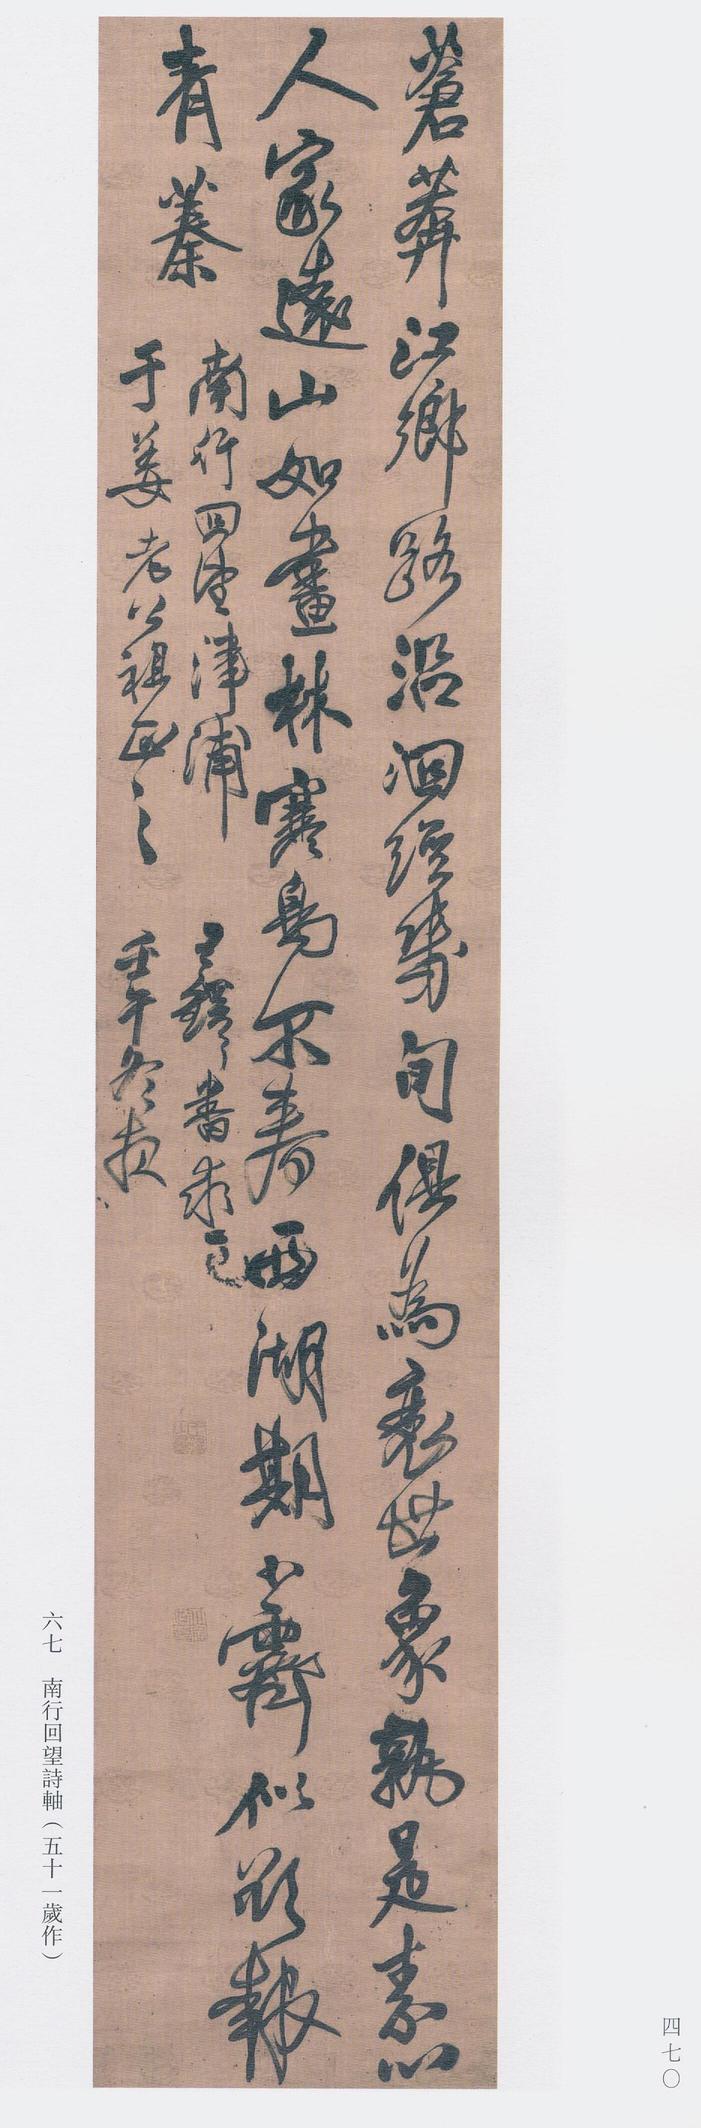 蒼莽江鄉路沿洄經幾旬俱為衰世象孰是素心
人家遠山如畫林寒鳥不春西湖期小霽似欲報
青蓁
南行回望津浦
于姜老公祖正之
王鐸
壬午冬夜
六七　南行回望詩軸（五十一歲作）
四七〇